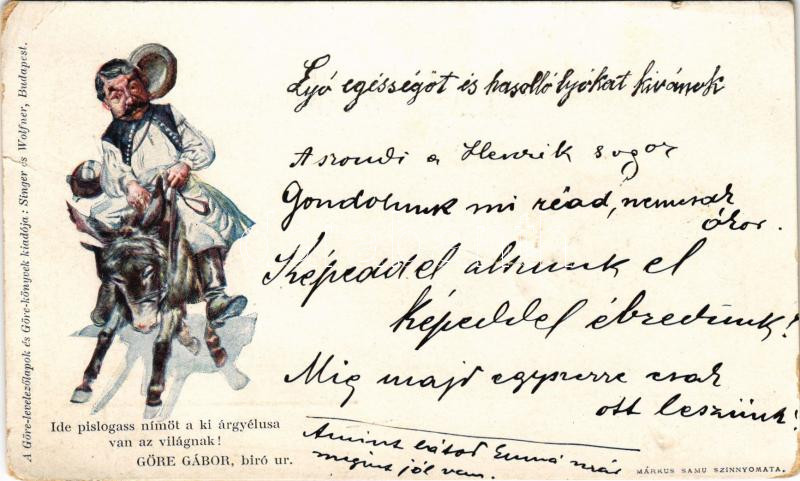 A Göre-levelezőlapok és Göre-könyvek kiadója: Singer és Wolfner, Budapest.
egésségöt és hasolló kivánok
Aszondi a Henrik sogor
Gondolunk mi réád, nemcsak
ókor.
Képeddel alszunk el
Képeddel ébredünk!
Mig majd egyszerre csak
ott leszünk!
Amint látod Emma már
megint jól van.
Ide pislogass nímöt a ki árgyélusa
van az világnak!
GÖRE GÁBOR, biró ur.
MÁRKUS SAMU SZINNYOMATA.